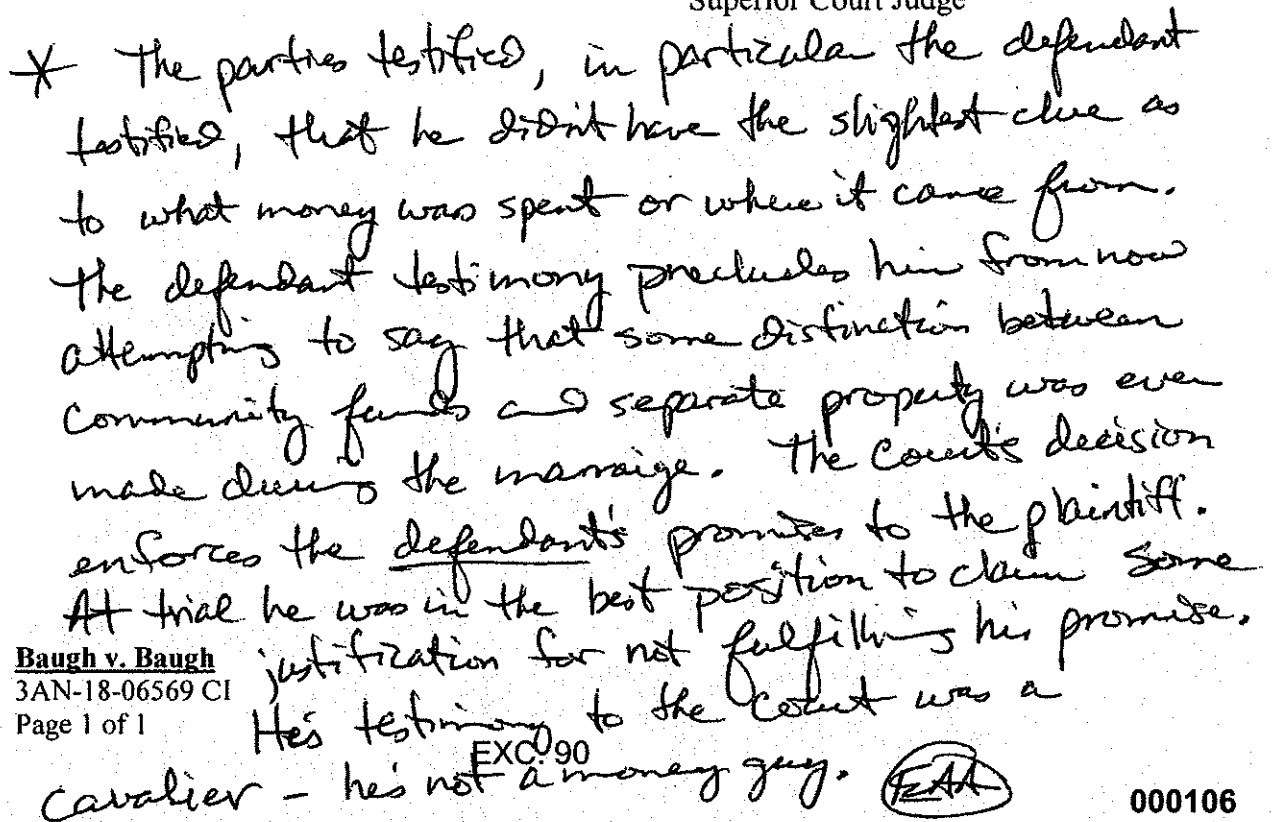 Superior Court Judge
* The parties testified, in particular the defendant
testified, that he didn't have the slightest clue as
to what money was spent or where it came from.
The defendant testimony precludes him from now
attempting to say that some distinction between
community funds and separate property was even
made during the marraige. The Court's decision
enforces the defendant's promises to the plaintiff.
At trial he was in the best position to claim some
justification for not fulfilling his promise.
He's testimony to the Court was a
cavalier - he's not a money guy.
Baugh v. Baugh
3AN-18-06569 CI
Page 1 of 1
EXC. 90
000106